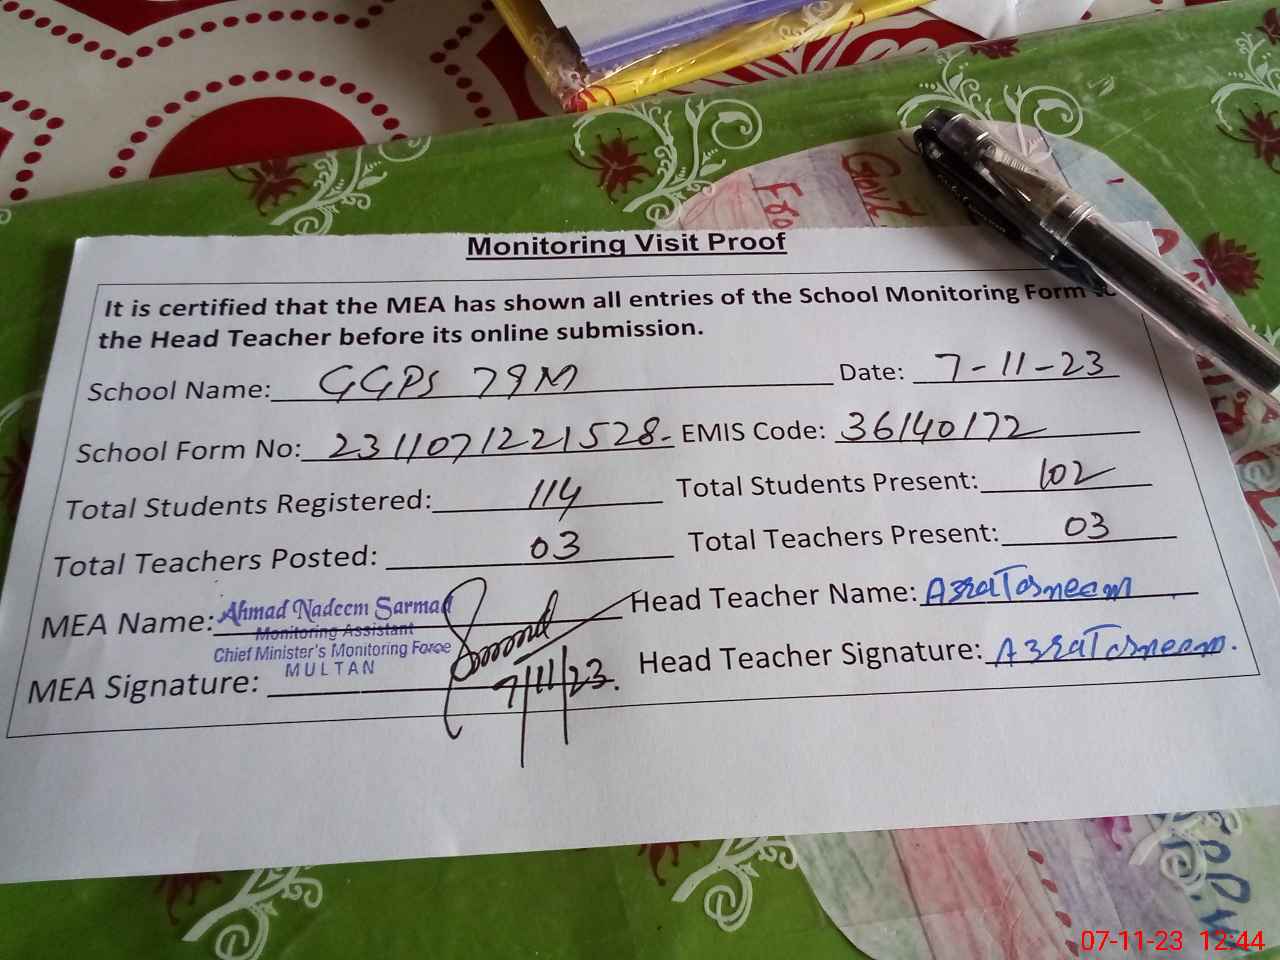 Govt
Monitoring Visit Proof
It is certified that the MEA has shown all entries of the School Monitoring Form to
the Head Teacher before its online submission.
School Name: GGPS 79M Date: 7-11-23
School Form No: 2311071221528- EMIS Code: 36140172
Total Students Registered: 114 Total Students Present: 102
Total Teachers Posted: 03 Total Teachers Present: 03
MEA Name: Ahmad Nadeem Sarmad Head Teacher Name: AzraTasneem
Monitoring Assistant
Chief Minister's Monitoring Force
MULTAN
MEA Signature: 7/11/23. Head Teacher Signature: AzraTasneem.
07-11-23 12:44